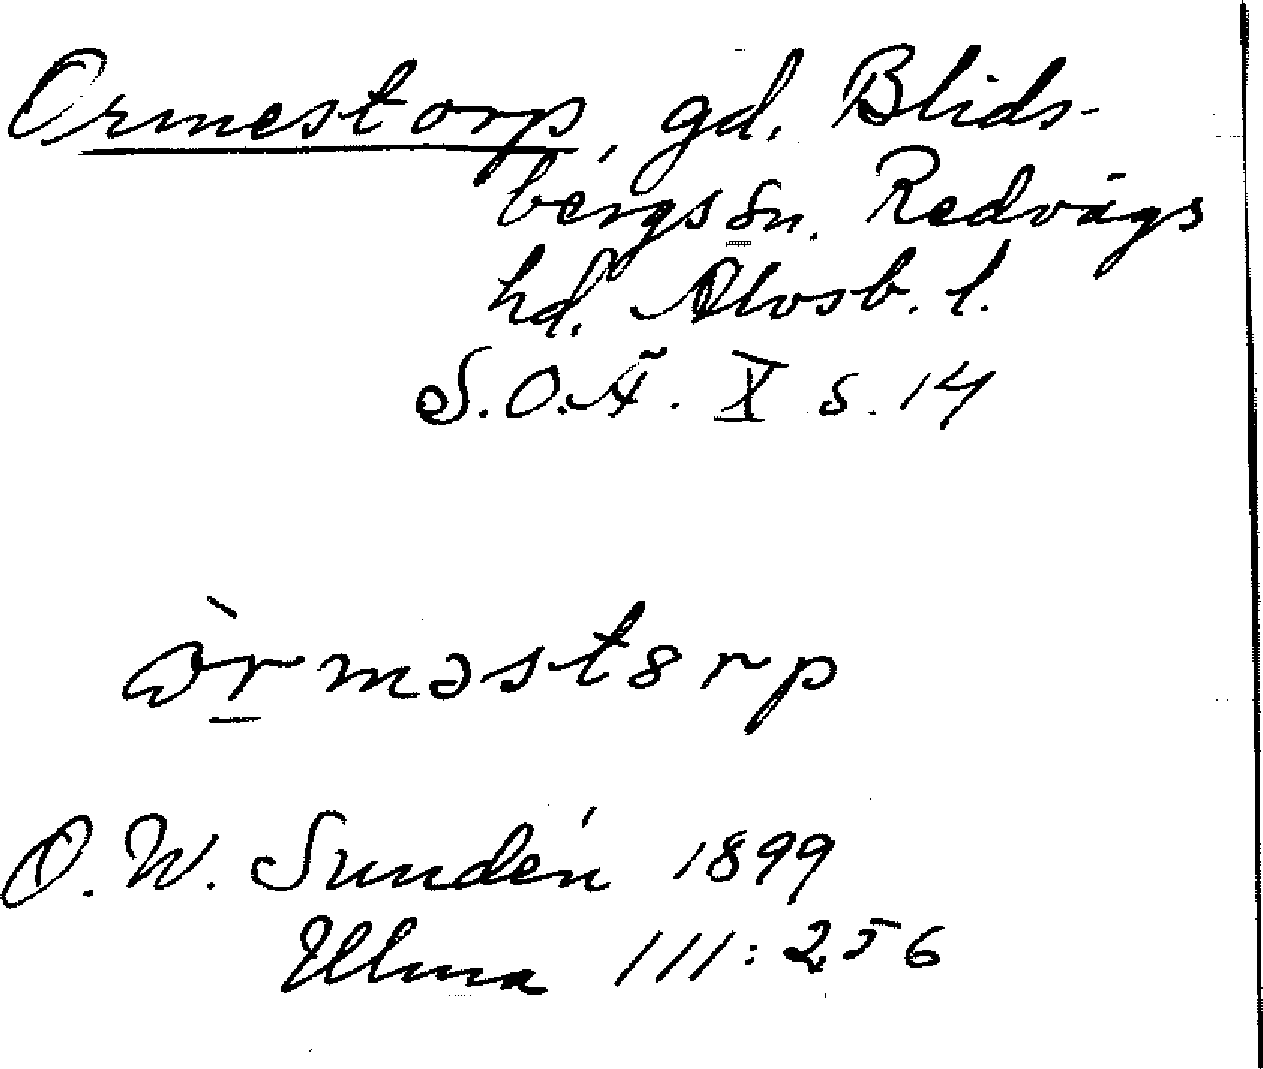 Ormestorp, gd. Blids-
bergs sn. Redvägs
hd. Älvsb. l.
S.O.Ä. X s. 14
òrməstɞrp
D. W. Sundén 1899
Ulma 111:256